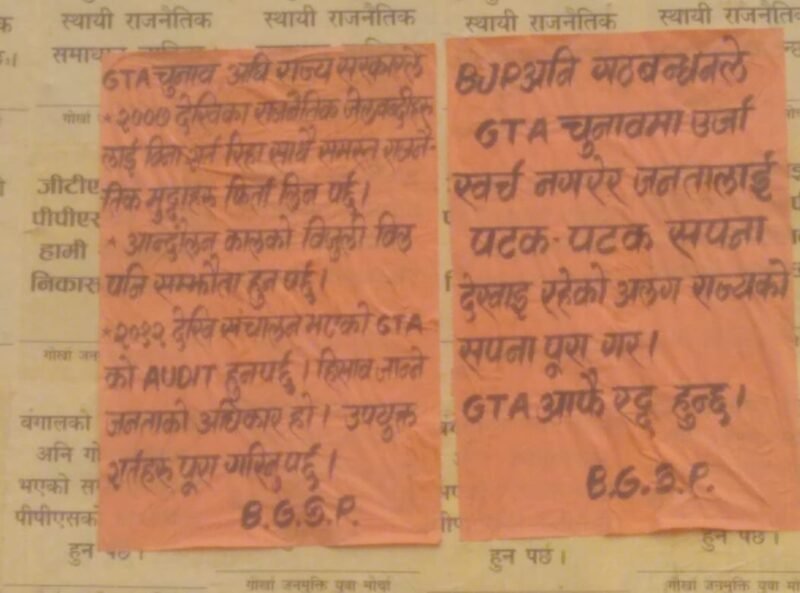 स्थायी राजनैतिक
स्थायी राजनैतिक
स्थायी राजनैतिक
स्थायी राजनैतिक
GTA चुनाव अघि राज्य सरकारले
* २००७ देखिका राजनैतिक जेलबन्दीहरू
लाई बिना शर्त रिहा साथै समस्त राजनै-
तिक मुद्दाहरू फिर्ता लिन पर्छ।
* आन्दोलन कालको बिजुली बिल
पनि सम्झौता हुन पर्छ।
* २०१२ देखि संचालन भएको GTA
को AUDIT हुनपर्छ। हिसाब जान्ने
जनताको अधिकार हो। उपयुक्त
शर्तहरू पूरा गरिनुपर्छ।
B.G.S.P.
BJP अनि गठबन्धनले
GTA चुनावमा उर्जा
खर्च नगरेर जनतालाई
पटक-पटक सपना
देखाइ रहेको अलग राज्यको
सपना पूरा गर।
GTA आफै रद्द हुन्छ।
B.G.S.P.
जीटीए
पीपीएस
हामी
निकास
बंगालको
अनि गो
भएको
पीपीएसको
हुन पर्छ।
हुन पर्छ।
हुन पर्छ।
गोर्खा जनमुक्ति युवा मोर्चा
गोर्खा जनमुक्ति युवा मो